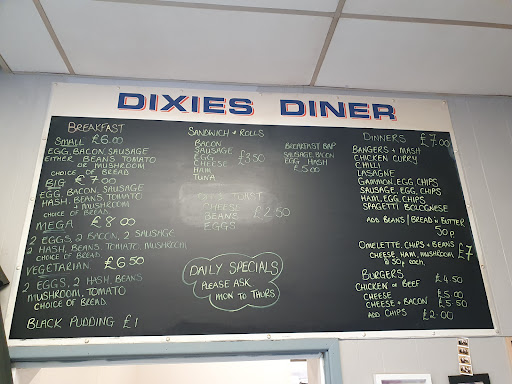 DIXIES DINER
BREAKFAST
SMALL £6.00
EGG, BACON, SAUSAGE
EITHER BEANS TOMATO
OR MUSHROOM
CHOICE OF BREAD
BIG £7.00
EGG, BACON, SAUSAGE
HASH, BEANS, TOMATO
+ MUSHROOM
CHOICE OF BREAD
MEGA £8.00
2 EGGS, 2 BACON, 2 SAUSAGE
2 HASH, BEANS, TOMATO, MUSHROOM
CHOICE OF BREAD
VEGETARIAN £6.50
2 EGGS, 2 HASH, BEANS
MUSHROOM, TOMATO
CHOICE OF BREAD
BLACK PUDDING £1
SANDWICH + ROLLS
BACON
SAUSAGE
EGG £3.50
CHEESE
HAM
TUNA
TOAST
CHEESE
BEANS £2.50
EGGS
DAILY SPECIALS
PLEASE ASK
MON TO THURS
BREAKFAST BAP
SAUSAGE, BACON
EGG HASH
£5.00
DINNERS £7.00
BANGERS + MASH
CHICKEN CURRY
CHILLI
LASAGNE
GAMMON, EGG, CHIPS
SAUSAGE, EGG, CHIPS
HAM, EGG, CHIPS
SPAGETTI BOLOGNESE
ADD BEANS / BREAD N BUTTER
50p
OMELETTE, CHIPS + BEANS £7
CHEESE, HAM, MUSHROOM
50p each.
BURGERS
CHICKEN or BEEF £4.50
CHEESE £5.00
CHEESE + BACON £5.50
ADD CHIPS £2.00